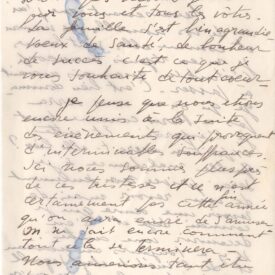 pour vous et tous les vôtres.
La famille s'est bien agrandie
Voeux de Santé, de bonheur
de succès c'est ce que je
vous souhaite de tout coeur —
je pense que nous sommes
encore unis à la suite
des évènements qui provoquent
d'interminables souffrances.
Ici nous sommes plus près
de ces tristesses et ce n'est
certainement pas cette année
qu'on aura envie de s'amuser
On ne sait encore comment
tout cela se terminera —
Nous aimerions tant être